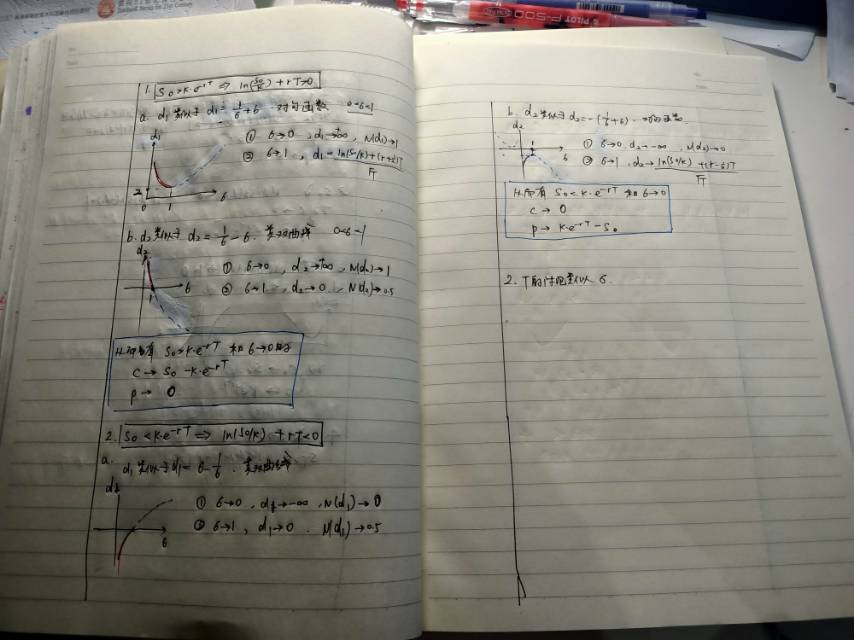 1. S₀>K·e⁻ʳᵀ ⇒ ln(S₀/K)+rT>0
a. d₁类似于 d₁=1/6+6 · 对勾函数 0<6<1
d₁
① 6→0 , d₁→+∞ , N(d₁)→1
② 6→1 , d₁= ln(S₀/K)+(r+½)T / √T
2
0 1 6
b. d₂类似于 d₂=1/6-6 . 类双曲线 0<6<1
d₂
① 6→0 , d₂→+∞ , N(d₂)→1
② 6→1 , d₂→0 , N(d₂)→0.5
1 6
从而有 S₀>K·e⁻ʳᵀ 和 6→0时
C→ S₀-K·e⁻ʳᵀ
P→ 0
2. S₀<K·e⁻ʳᵀ ⇒ ln(S₀/K)+rT<0
a. d₁类似于d₁=6-1/6 . 类双曲线
① 6→0 , d₁→-∞ , N(d₁)→0
② 6→1 , d₁→0 . N(d₁)→0.5
6
b. d₂类似于 d₂=-(1/6+6) . 对勾函数.
d₂
① 6→0, d₂→-∞ , N(d₂)→0
② 6→1 , d₂→ ln(S₀/K)+(r-½)T / √T
6
从而有 S₀<K·e⁻ʳᵀ 和 6→0
C→ 0
P→ K·e⁻ʳᵀ-S₀
2. T的讨论类似 6.
PILOT P-500